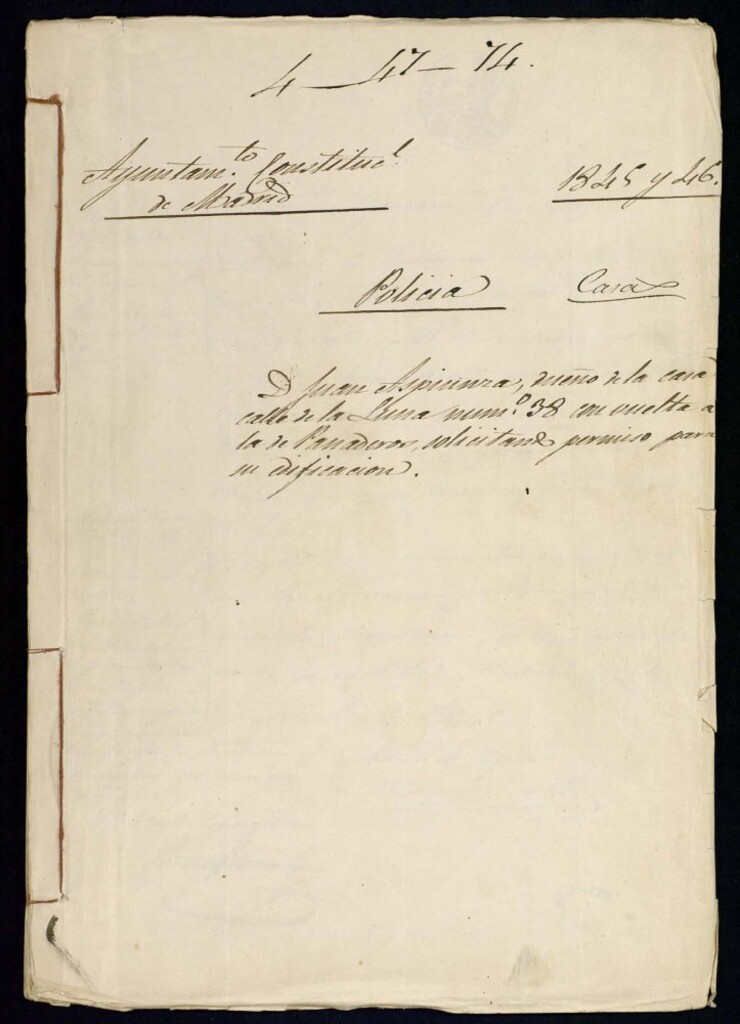 4 — 47 — 74.
Ayuntam.to Constituc.l
de Madrid
1845 y 46.
Policia
Casas
D. Juan Azpicunza, dueño de la casa
calle de la Luna num.o 38 con vuelta a
la de Panaderos, solicitando permiso para
su edificacion.